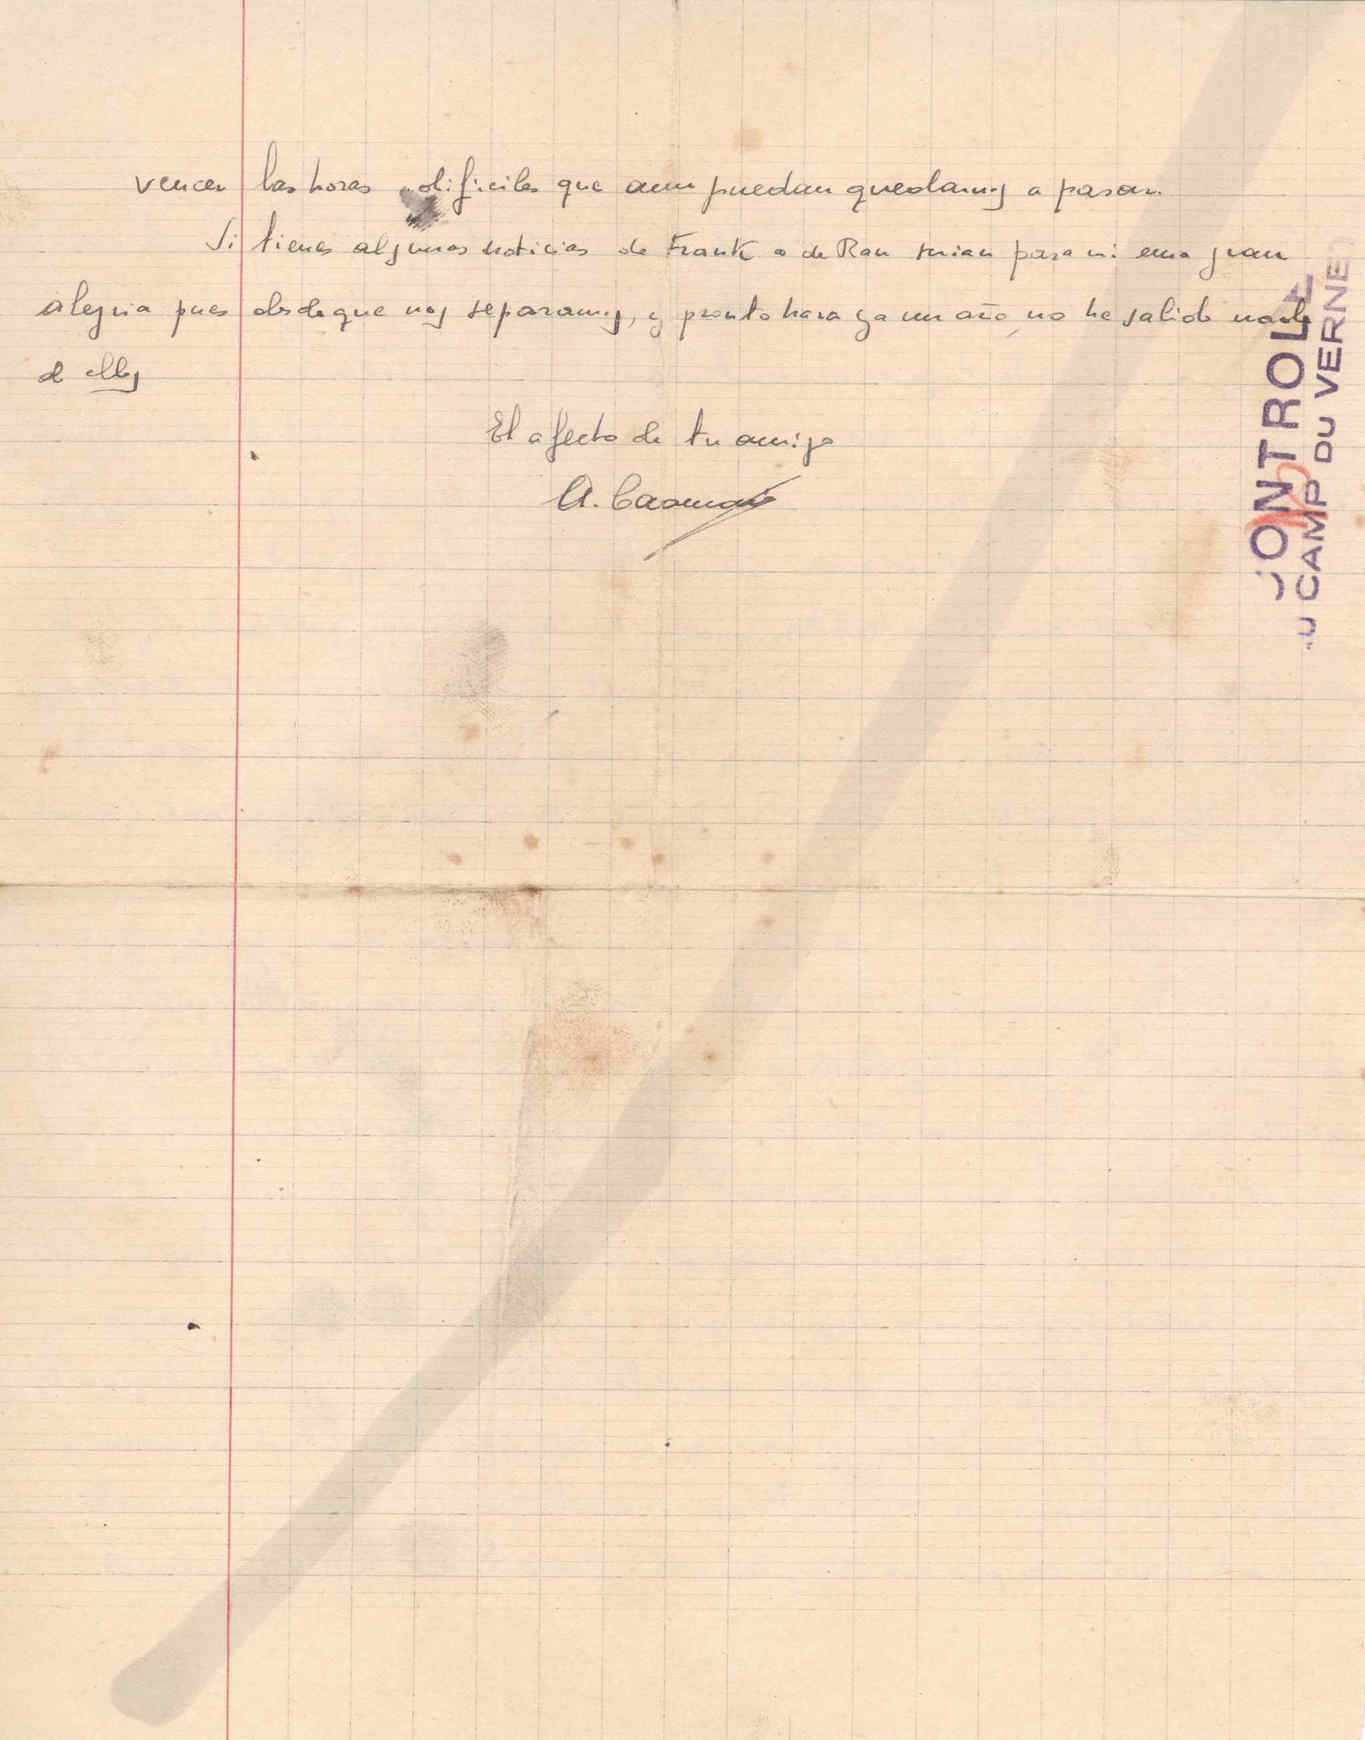 vencer las horas dificiles que aun puedan quedarnos a pasar.
Si tienes algunas noticias de Frank o de Rau serian para mi una gran
alegria pues desde que nos separamos, y pronto hara ya un año, no he salido nada
de ellos
El afecto de tu amigo
A.
CONTROLÉ
AU CAMP DU VERNET